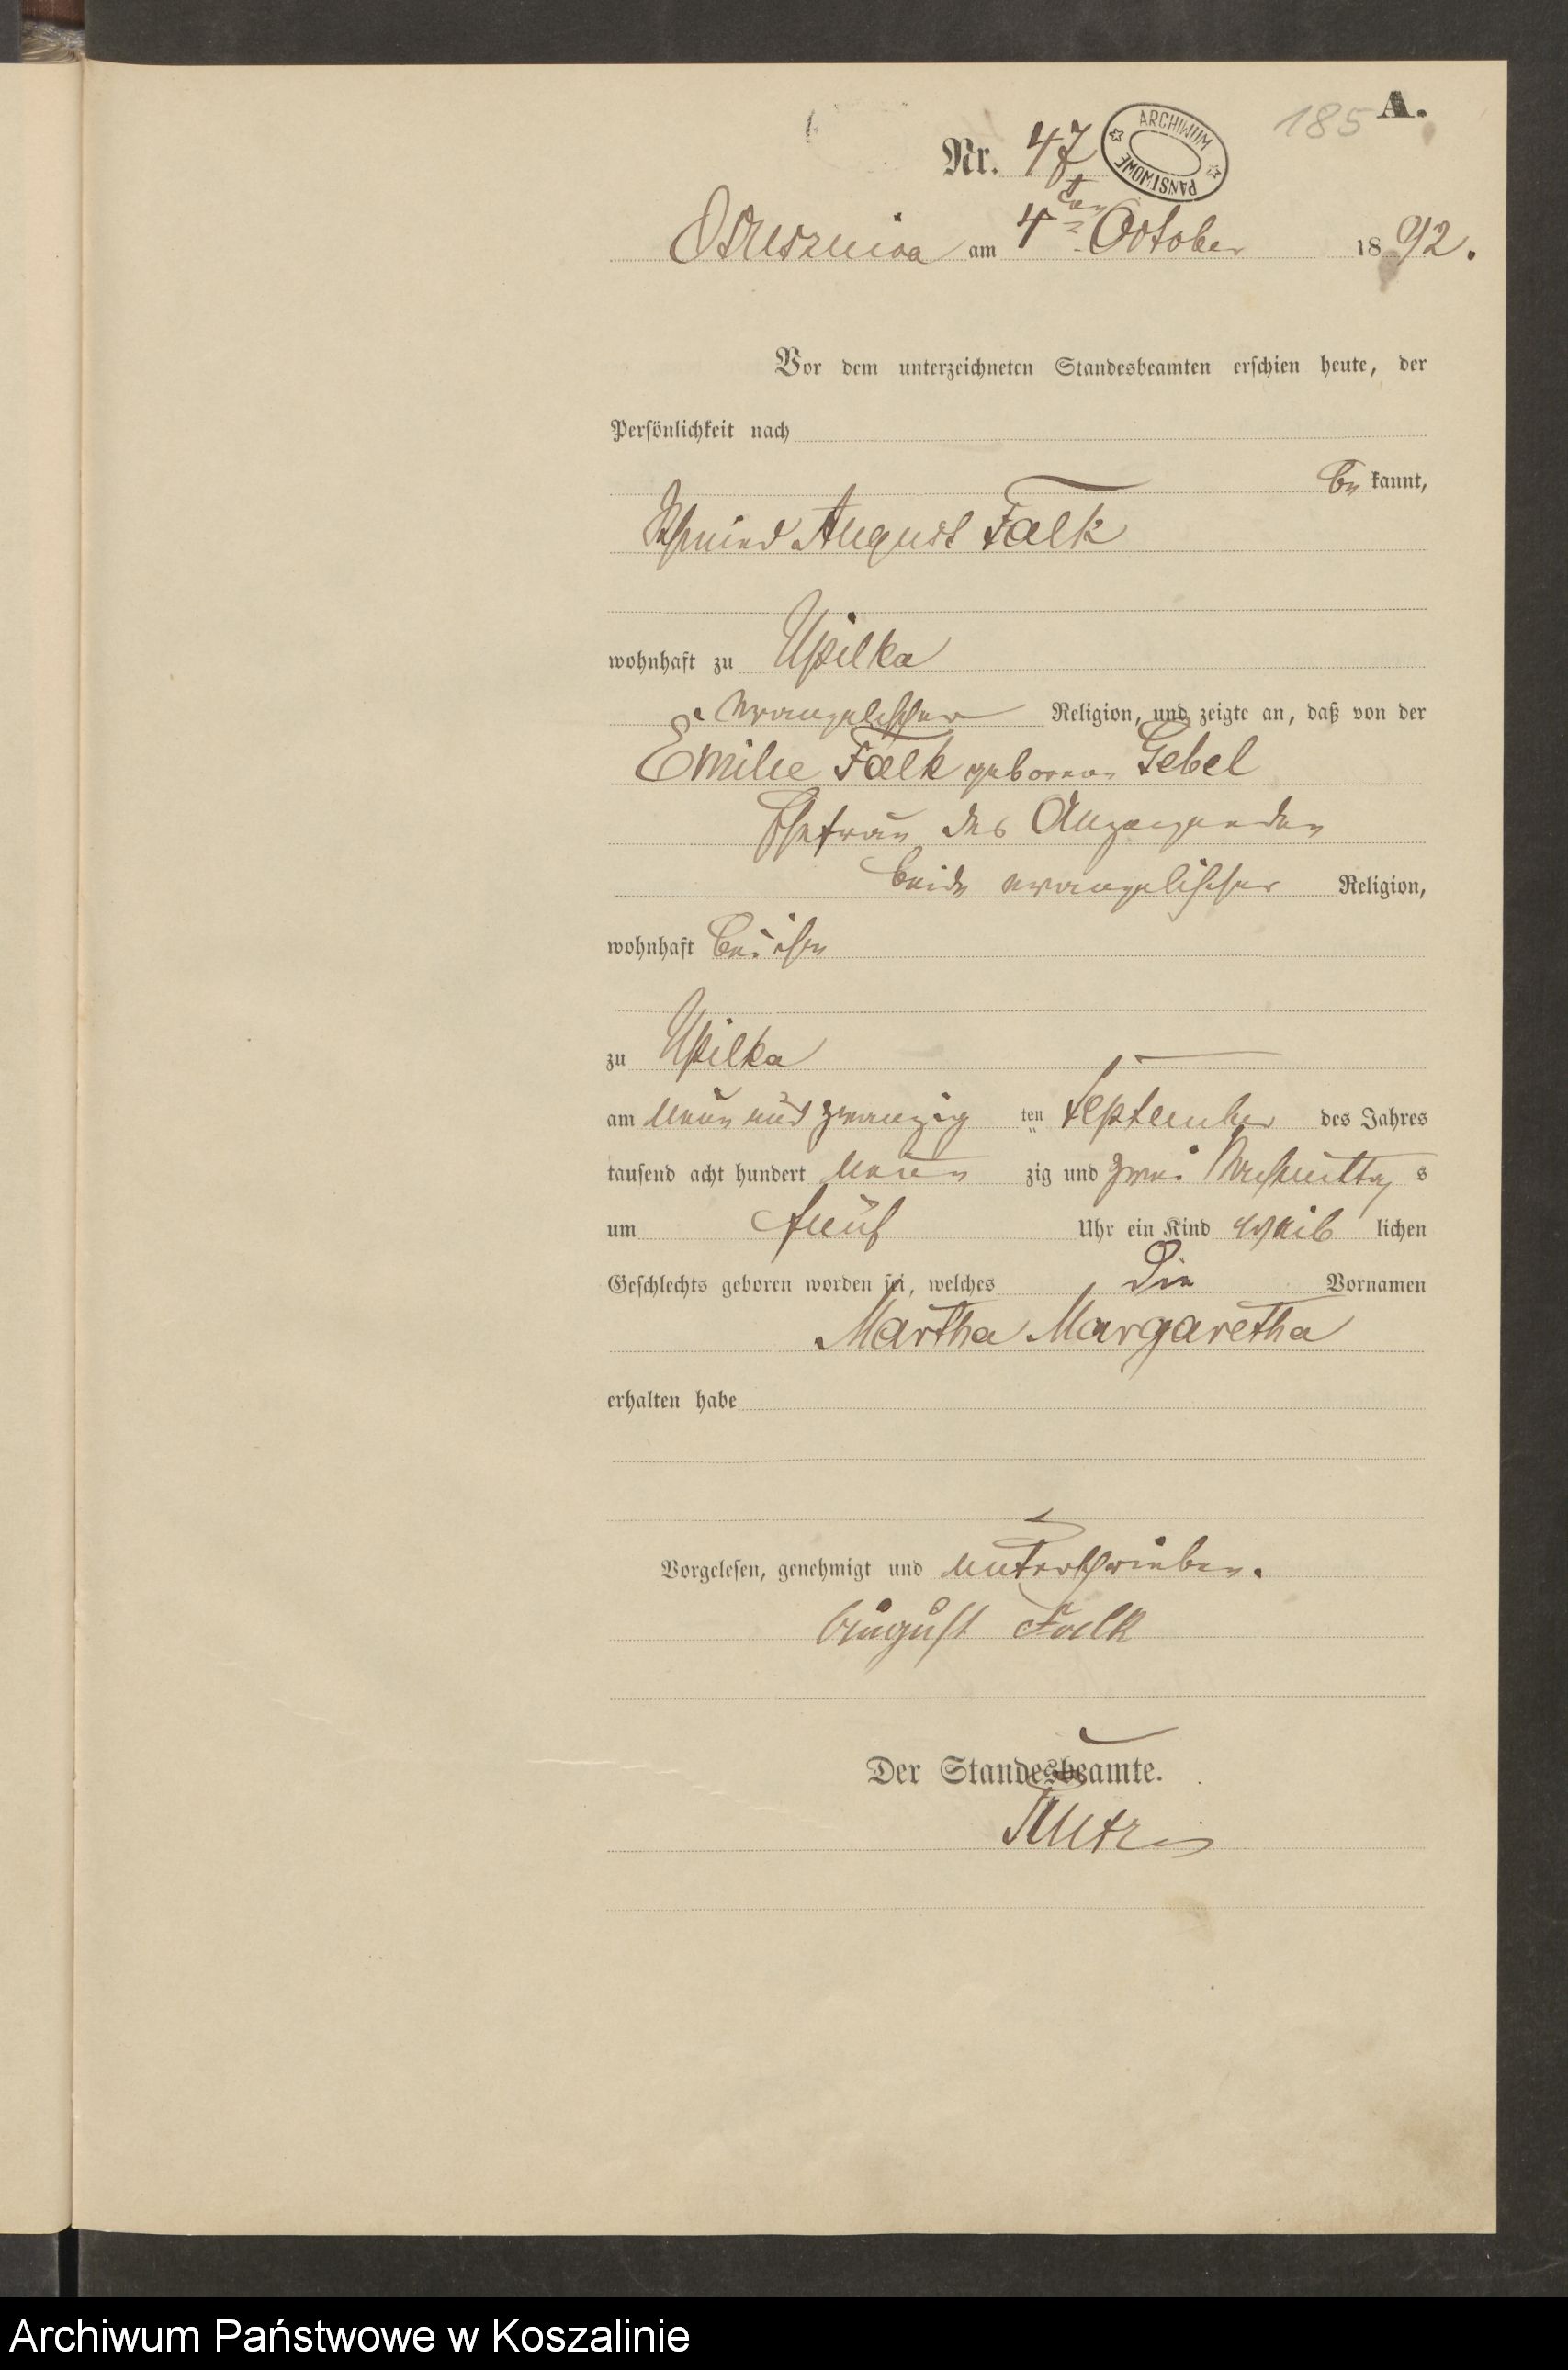 185 A.
Nr. 47
ARCHIWUM PAŃSTWOWE
am 4ten October 1892.
Vor dem unterzeichneten Standesbeamten erschien heute, der
Persönlichkeit nach
be kannt,
Schmied August Falk
wohnhaft zu Upilka
evangelischer Religion, und zeigte an, daß von der
Emilie Falk geborene Gebel
Ehefrau des Anzeigenden
beide evangelischer Religion,
wohnhaft bei ihm
zu Upilka
am neun und zwanzig ten September des Jahres
tausend acht hundert neun zig und zwei Nachmittag s
um fünf Uhr ein Kind weib lichen
Geschlechts geboren worden sei, welches die Vornamen
Martha Margaretha
erhalten habe
Vorgelesen, genehmigt und unterschrieben.
August Falk
Der Standesbeamte.
Archiwum Państwowe w Koszalinie